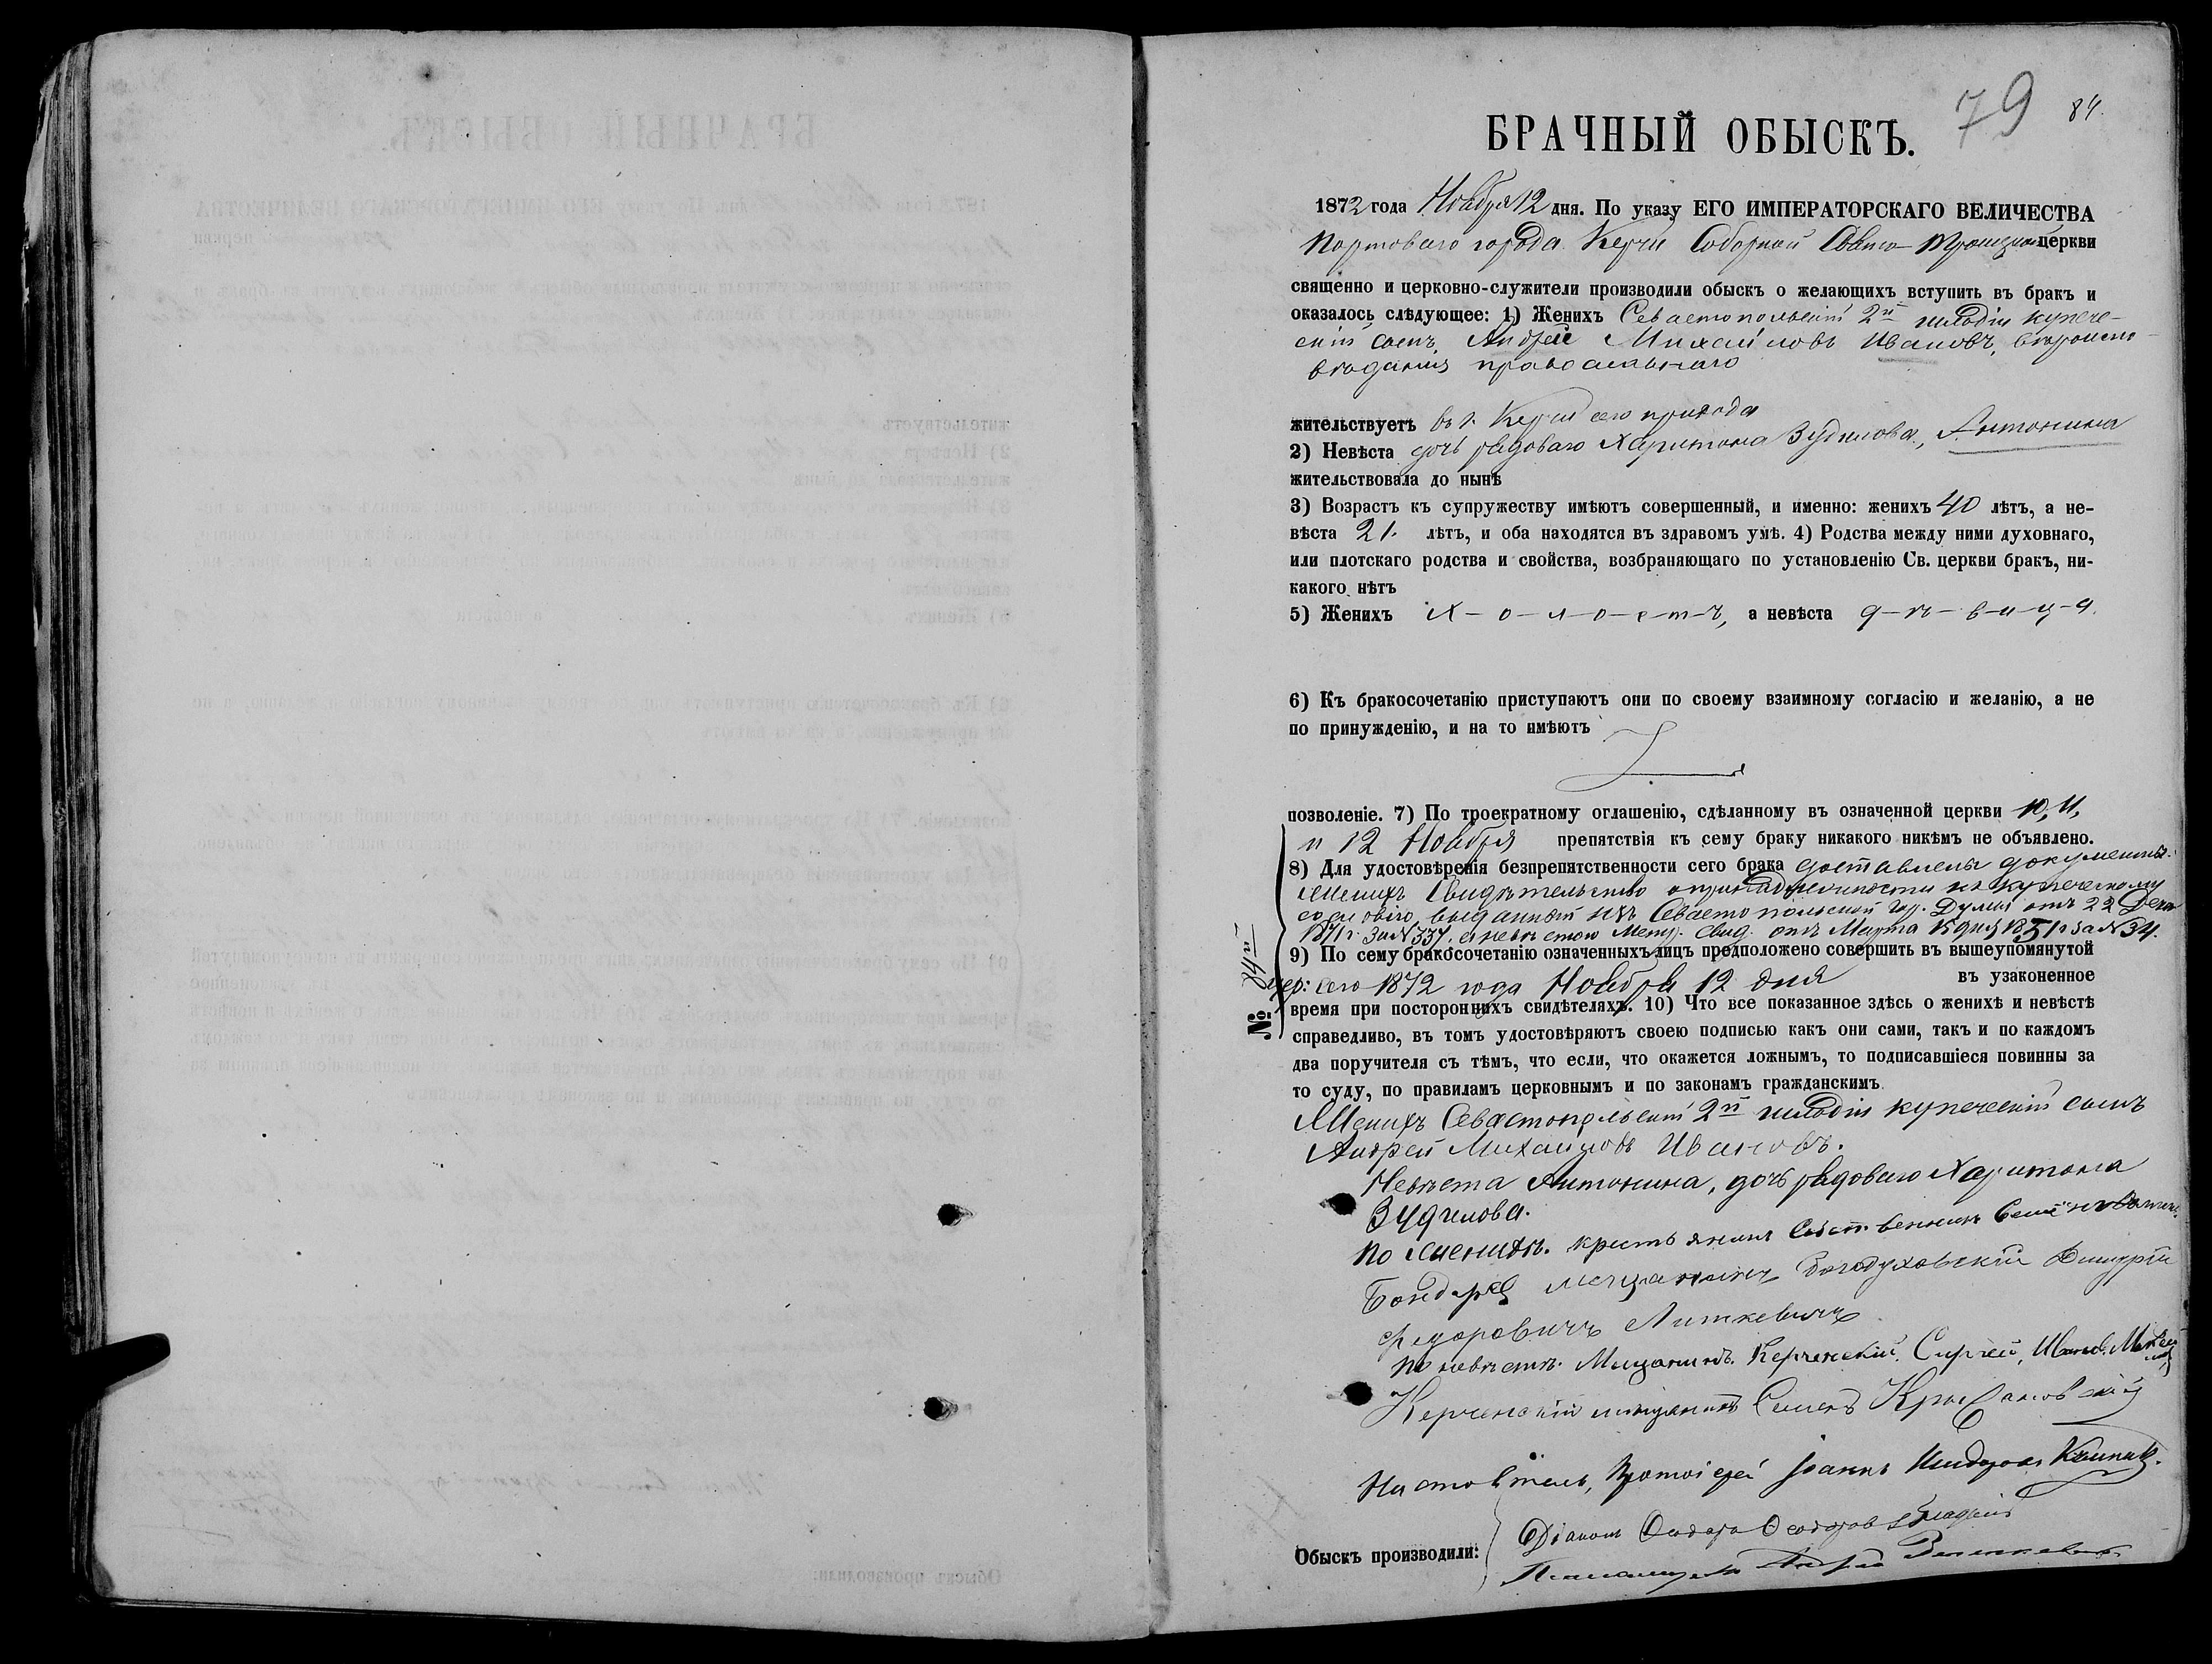 79 84.
БРАЧНЫЙ ОБЫСКЪ.
1872 года Ноября 12 дня. По указу ЕГО ИМПЕРАТОРСКАГО ВЕЛИЧЕСТВА
Портоваго города Керчи Соборной Свято-Троицкой церкви
священно и церковно-служители производили обыскъ о желающихъ вступить въ бракъ и
оказалось слѣдующее: 1) Женихъ Севастопольскій 2й гильдіи купече-
скій сынъ, Андрей Михайловъ Ивановъ, вѣроиспо-
вѣданія православнаго
жительствуетъ въ г. Керчи сего прихода
2) Невѣста дочь рядоваго Харитона Зудилова, Антонина
жительствовала до нынѣ
3) Возрастъ къ супружеству имѣютъ совершенный, и именно: женихъ 40 лѣтъ, а не-
вѣста 21. лѣтъ, и оба находятся въ здравомъ умѣ. 4) Родства между ними духовнаго,
или плотскаго родства и свойства, возбраняющаго по установленію Св. церкви бракъ, ни-
какого нѣтъ
5) Женихъ х-о-л-о-с-т-ъ, а невѣста д-ѣ-в-и-ц-а.
6) Къ бракосочетанію приступаютъ они по своему взаимному согласію и желанію, а не
по принужденію, и на то имѣютъ
позволеніе. 7) По троекратному оглашенію, сдѣланному въ означенной церкви 10, 11,
и 12 Ноября препятствія къ сему браку никакого никѣмъ не объявлено.
8) Для удостовѣренія безпрепятственности сего брака доставлены документы:
женихъ Свидѣтельство о принадлежности къ купеческому
сословію, выданный изъ Севастопольской гор. Думы отъ 22 Дек.
1871 г. за № 337. а невѣстою Метр. Свид. отъ Марта 15 дня 1851 г. за № 34.
9) По сему бракосочетанію означенныхъ лицъ предположено совершить въ вышеупомянутой
цер: сего 1872 года Ноября 12 дня въ узаконенное
время при постороннихъ свидѣтеляхъ. 10) Что все показанное здѣсь о женихѣ и невѣстѣ
справедливо, въ томъ удостовѣряютъ своею подписью какъ они сами, такъ и по каждомъ
два поручителя съ тѣмъ, что если, что окажется ложнымъ, то подписавшіеся повинны за
то суду, по правиламъ церковнымъ и по законамъ гражданскимъ.
№ 84й
Женихъ Севастопольскій 2й гильдіи купеческій сынъ
Андрей Михайловъ Ивановъ.
Невѣста Антонина, дочь рядоваго Харитона
Зудилова.
По женихѣ. крестьянинъ Собственникъ
Бондарев мещанинъ Богодуховскій Дмитрій
Федоровичъ Литкевичъ
По невѣстѣ. Мищанинъ. Керченскій. Сергей, Иванов.
Керченскій мищанинъ Семенъ Крыжановскій
Настоятель, Протоіерей Іоаннъ
Обыскъ производили:
Діаконъ Ѳеодоръ Ѳеодоров
Андрей